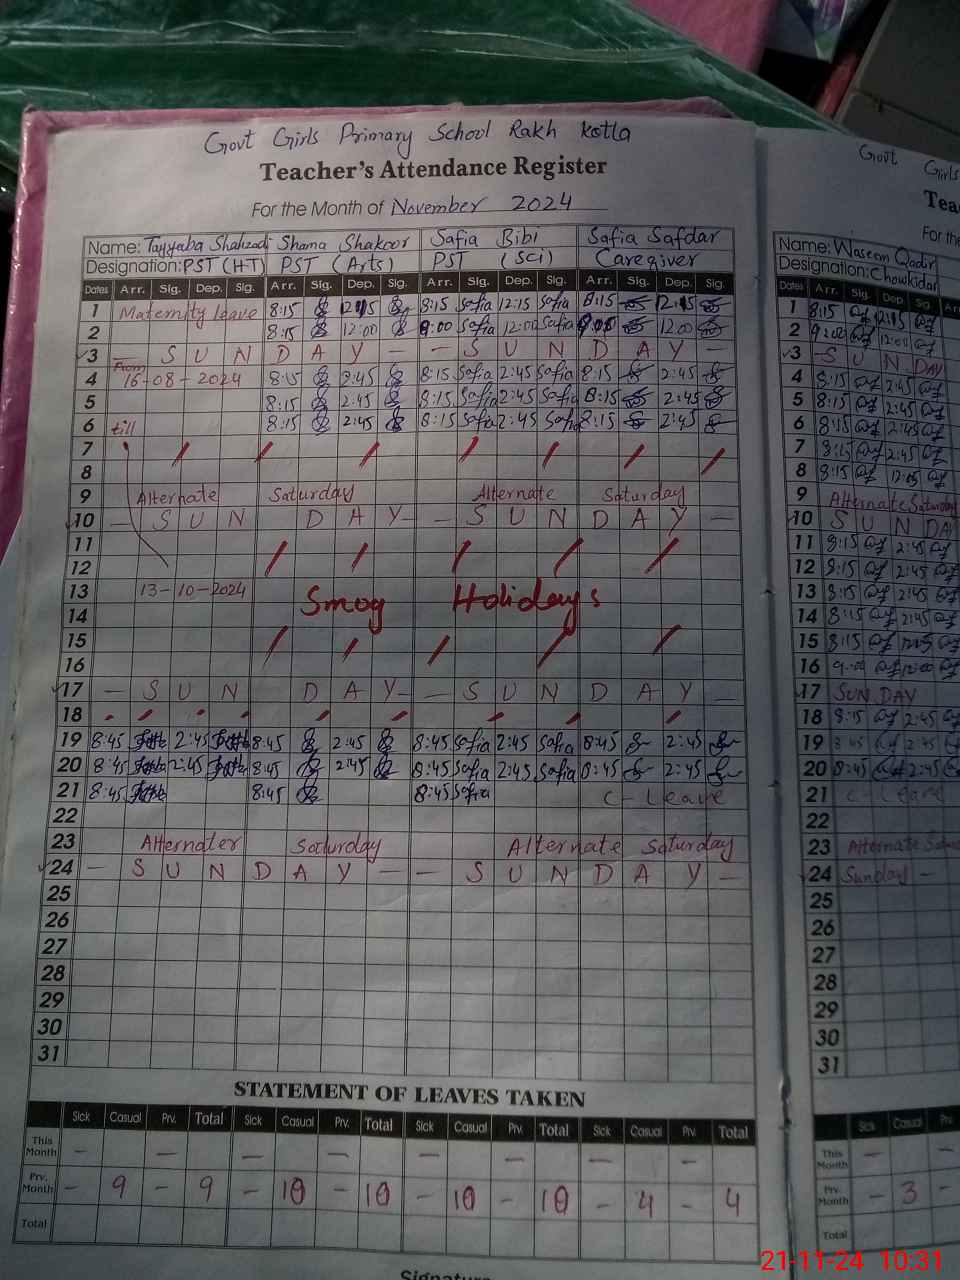 Govt Girls Primary School Rakh Kotla
Teacher's Attendance Register
For the Month of November 2024
Name: Tayyaba Shahzad Shama Shakoor Safia Bibi Safia Safdar
Designation: PST (H-T) PST (Arts) PST (Sci) Caregiver
Dates Arr. Sig. Dep. Sig. Arr. Sig. Dep. Sig. Arr. Sig. Dep. Sig. Arr. Sig. Dep. Sig.
1 Maternity leave 8:15 12:15 8:15 Safia 12:15 Safia 8:15 12:15
2 8:15 12:00 9:00 Safia 12:00 Safia 9:05 12:00
3 — S U N D A Y — — S U N D A Y —
From
4 16-08-2024 8:15 2:45 8:15 Safia 2:45 Safia 8:15 2:45
5 8:15 2:45 8:15 Safia 2:45 Safia 8:15 2:45
6 till 8:15 2:45 8:15 Safia 2:45 Safia 8:15 2:45
7
8
9 Alternate Saturday Alternate Saturday
10 — S U N D A Y — — S U N D A Y —
11
12
13 13-10-2024
Smog Holidays
14
15
16
17 — S U N D A Y — — S U N D A Y —
18
19 8:45 2:45 8:45 2:45 8:45 Safia 2:45 Safia 8:45 2:45
20 8:45 2:45 8:45 2:45 8:45 Safia 2:45 Safia 8:45 2:45
21 8:45 8:45 8:45 Safia C-Leave
22
23 Alternater Saturday Alternate Saturday
24 — S U N D A Y — — S U N D A Y —
25
26
27
28
29
30
31
STATEMENT OF LEAVES TAKEN
Sick Casual Prv. Total Sick Casual Prv. Total Sick Casual Prv. Total Sick Casual Prv. Total
This Month — — — — — — — —
Prv. Month - 9 - 9 - 10 - 10 - 10 - 10 - 4 - 4
Total
Signature
Govt Girls
Tea
For the
Name: Waseem Qadir
Designation: Chowkidar
Dates Arr. Sig. Dep. Sig. Ar
1 8:15 12:15
2 9:00 12:00
3 - S U N DAY
4 8:15 2:45
5 8:15 2:45
6 8:15 2:45
7 8:15 2:45
8 8:15 12:05
9 Alternate Saturday
10 S U N DA
11 8:15 2:45
12 8:15 2:45
13 8:15 2:45
14 8:15 2:45
15 8:15
16 9:00 12:00
17 SUN DAY
18 8:15 2:45
19 8:45 2:45
20 8:45 2:45
21 C-Leave
22
23 Alternate Satur
24 Sunday —
25
26
27
28
29
30
31
Sick Casual Prv
This Month — —
Prv. Month - 3 -
Total
21-11-24 10:31